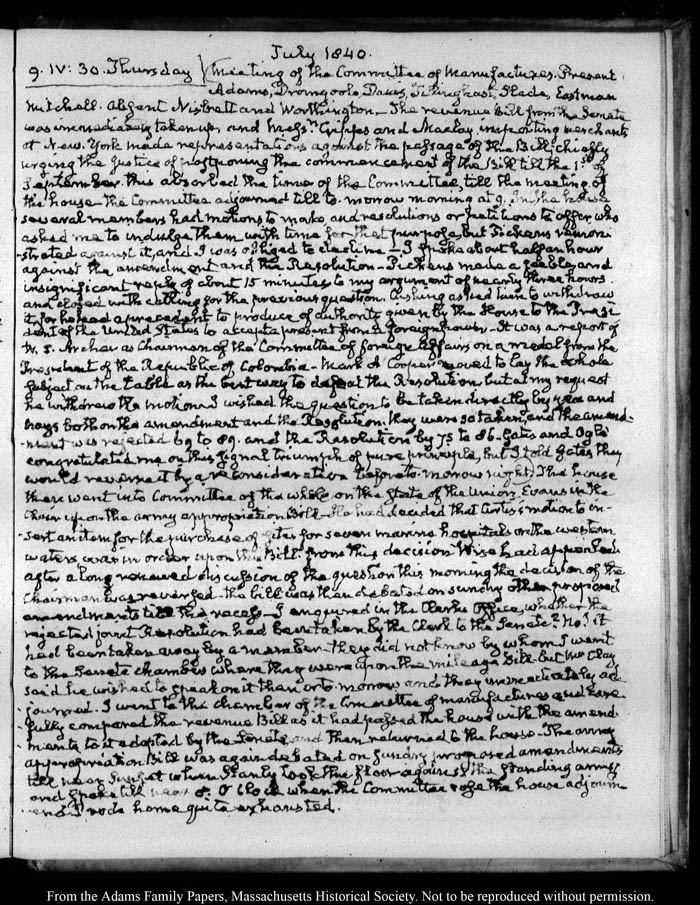 July 1840.
9. IV: 30. Thursday Meeting of the Committee of Manufactures. Present
Adams, Dromgoole, Davis, Tillinghast, Slade, Eastman
Mitchell. absent Nisbett and Worthington_ The revenue Bill from the Senate
was immediately taken up, and Messrs and Maclay, importing merchants
of New-York made representations against the passage of the Bill; chiefly
urging the Justice of postponing the commencement of the Bill till the 1st of
September. this absorbed the time of the Committee, till the meeting of
the house. The Committee adjourned till to-morow morning at 9. In the house
several members had motions to make and resolutions or petitions to offer, who
asked me to indulge them with time for that purpose, but Pickens remon-
-strated against it, and I was obliged to decline_ I spoke about half an hour
against the amendment and the Resolution_ Pickens made a feeble and
insignificant reply of about 15 minutes to my argument of nearly three hours.
and closed with calling for the previous question. Cushing asked him to withdraw
it, for he had a precedent to produce of authority given by the House to the Presi-
dent of the United States to accept a present from a foreign power_ It was a report of
W. S. Archer as Chairman of the Committee of foreign Affairs on a medal from the
President of the Republic of Colombia_ Mark A Cooper moved to lay the whole
subject on the table as the best way to defeat the Resolution but at my request
he withdrew the motion. I wished the question to be taken directly by yeas and
nays both on the amendment and the Resolution. They were so taken, and the amend-
-ment was rejected 69 to 89. and the Resolution by 75 to 86_ Gates and Ogle
congratulated me on this signal triumph of pure principle, but I told Gates they
would reverse it by a reconsideration before to-morow night. The house
then went into Committee of the whole on the state of the Union, Evans in the
Chair upon the army appropriation Bill_ He had decided that Curtis's motion to in-
-sert an item for the purchase of sites for seven marine hospitals on the western
waters was in order upon this Bill. from this decision Wise had appealed
after a long renewed discussion of the question this morning the decision of the
Chairman was reversed_ the bill was then debated on sundry other proposed
amendments till the recess_ I enquired in the Clerks Office, whether the
rejected joint Resolution had been taken by the Clerk to the Senate? No! it
had been taken away by a member_ they did not know by whom. I went
to the Senate chamber where they were upon the mileage Bill_ but Mr Clay
said he wished to speak on it then or to-morow and they immediately ad-
-journed. I went to the chamber of the Committee of manufactures and care-
-fully compared the revenue Bill as it had passed the house with the amend-
-ments to it adopted by the Senate and then returned to the house_ The army
appropriation Bill was again debated on sundry proposed amendments
till near sunset when Stanly took the floor against the standing army
and spoke till near 8. O'Clock when the Committee rose the house adjourn
-ed & I rode home quite exhausted.
From the Adams Family Papers, Massachusetts Historical Society. Not to be reproduced without permission.